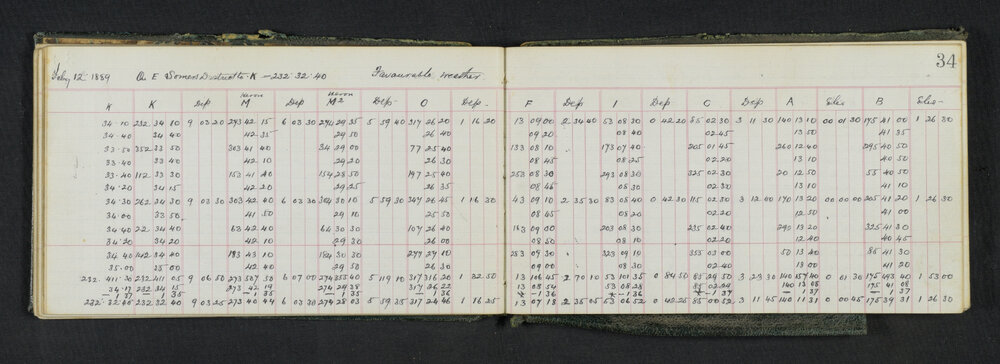 34
July 12th 1889 On E Somers District to K — 232° 32' 40 Favourable weather
K K Dep Heron M Dep Heron M2 Dep O Dep F Dep I Dep C Dep A Elev B Elev
34·10 232 34 10 9 03 20 273 42 15 6 03 30 274 29 35 5 59 40 317 26 20 1 16 20 13 09 00 2 34 40 53 08 30 0 42 20 85 02 30 3 11 30 140 13 10 00 01 30 175 41 00 1 26 30
34·40 34 40 42·35 29 50 26 40 09 20 08 40 02·45 13 50 41 35
33·50 352 33 50 303 41 40 34 29 00 77 25 40 133 08 10 173 07 40 205 01 45 260 12 40 295 40 50
33·40 33 40 42 10 29 20 26 30 08 45 08 25 02·20 13 10 40 50
33·40 112 33 30 153 41 40 154 28 50 197 25 40 253 08 30 293 08 30 325 02 30 20 12 50 55 40 50
34·20 34 15 42 20 29 25 26 35 08 45 08 30 02 30 13 10 41 10
34·30 262 34 30 9 03 30 303 42 40 6 03 30 304 30 10 5 59 30 347 26 45 1 16 30 43 09 10 2 35 30 83 08 40 0 42 30 115 02 30 3 12 00 170 13 20 00 00 00 205 41 20 1 26 30
34 00 33 50 41 50 29 10 25 50 08 45 08 20 02 20 12 50 41 00
34 40 22 34 40 63 42 40 64 30 30 107 26 40 163 09 00 203 08 30 235 02 40 290 13 20 325 41 30
34·20 34 20 42 10 29 30 26 00 08 50 08 10 02 20 12 40 40 45
34 40 142 34 40 183 43 40 184 30 30 277 27 10 283 09 30 323 09 10 355 03 00 50 13 40 85 41 30
35·00 35 00 42 40 29 50 26 30 09 00 08 30 02 40 13 00 41 20
232 411:30 232 411 05 9 06 50 273 507 50 6 07 00 274 355 40 5 119 10 317 316 20 1 32·50 13 106 45 2 70 10 53 101 30 0 84 50 85 29 50 3 23 30 140 157 40 0 01 30 175 493 40 1 53 00
34·17 232 34 15 273 42 19 274 29 38 317 26 22 13 08 54 53 08 28 85 02 29 140 13 08 175 41 08
— 1 37 — 1 35 — 1 35 — 1 35 — 1 36 — 1 36 — 1 36 — 1 37 — 1 37 — 1 37
232·32·40 232 32 40 9 03 25 273 40 44 6 03 30 274 28 03 5 59 35 317 24 46 1 16 25 13 07 18 2 35 05 53 06 52 0 42 25 85 00 52 3 11 45 140 11 31 0 00 45 175 39 31 1 26 30